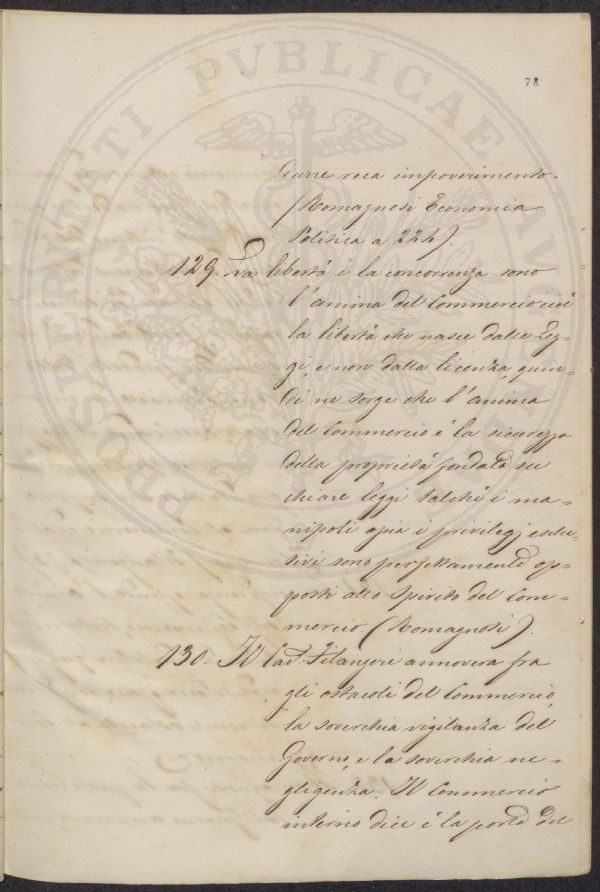 PROSPERITATI PVBLICAE AVG
78
durre reca impoverimento.
(Romagnosi Economia
Politica a 224).
129. La libertà è la concorrenza sono
l'anima del Commercio cioè
la libertà che nasce dalle Leg-
gi, e non dalla licenza, quin-
di ne sorge che l'anima
del Commercio è la sicurezza
della proprietà fondata su
chiare leggi talchè i ma-
nipoli ossia i privilegj esclu-
sivi sono perfettamente op-
posti allo Spirito del Com-
mercio. (Romagnosi).
130. Il Cav. Filangeri annovera fra
gli ostacoli del Commercio
la soverchia vigilanza del
Governo, e la soverchia ne-
gligenza. Il Commercio
interno dice è la porta del